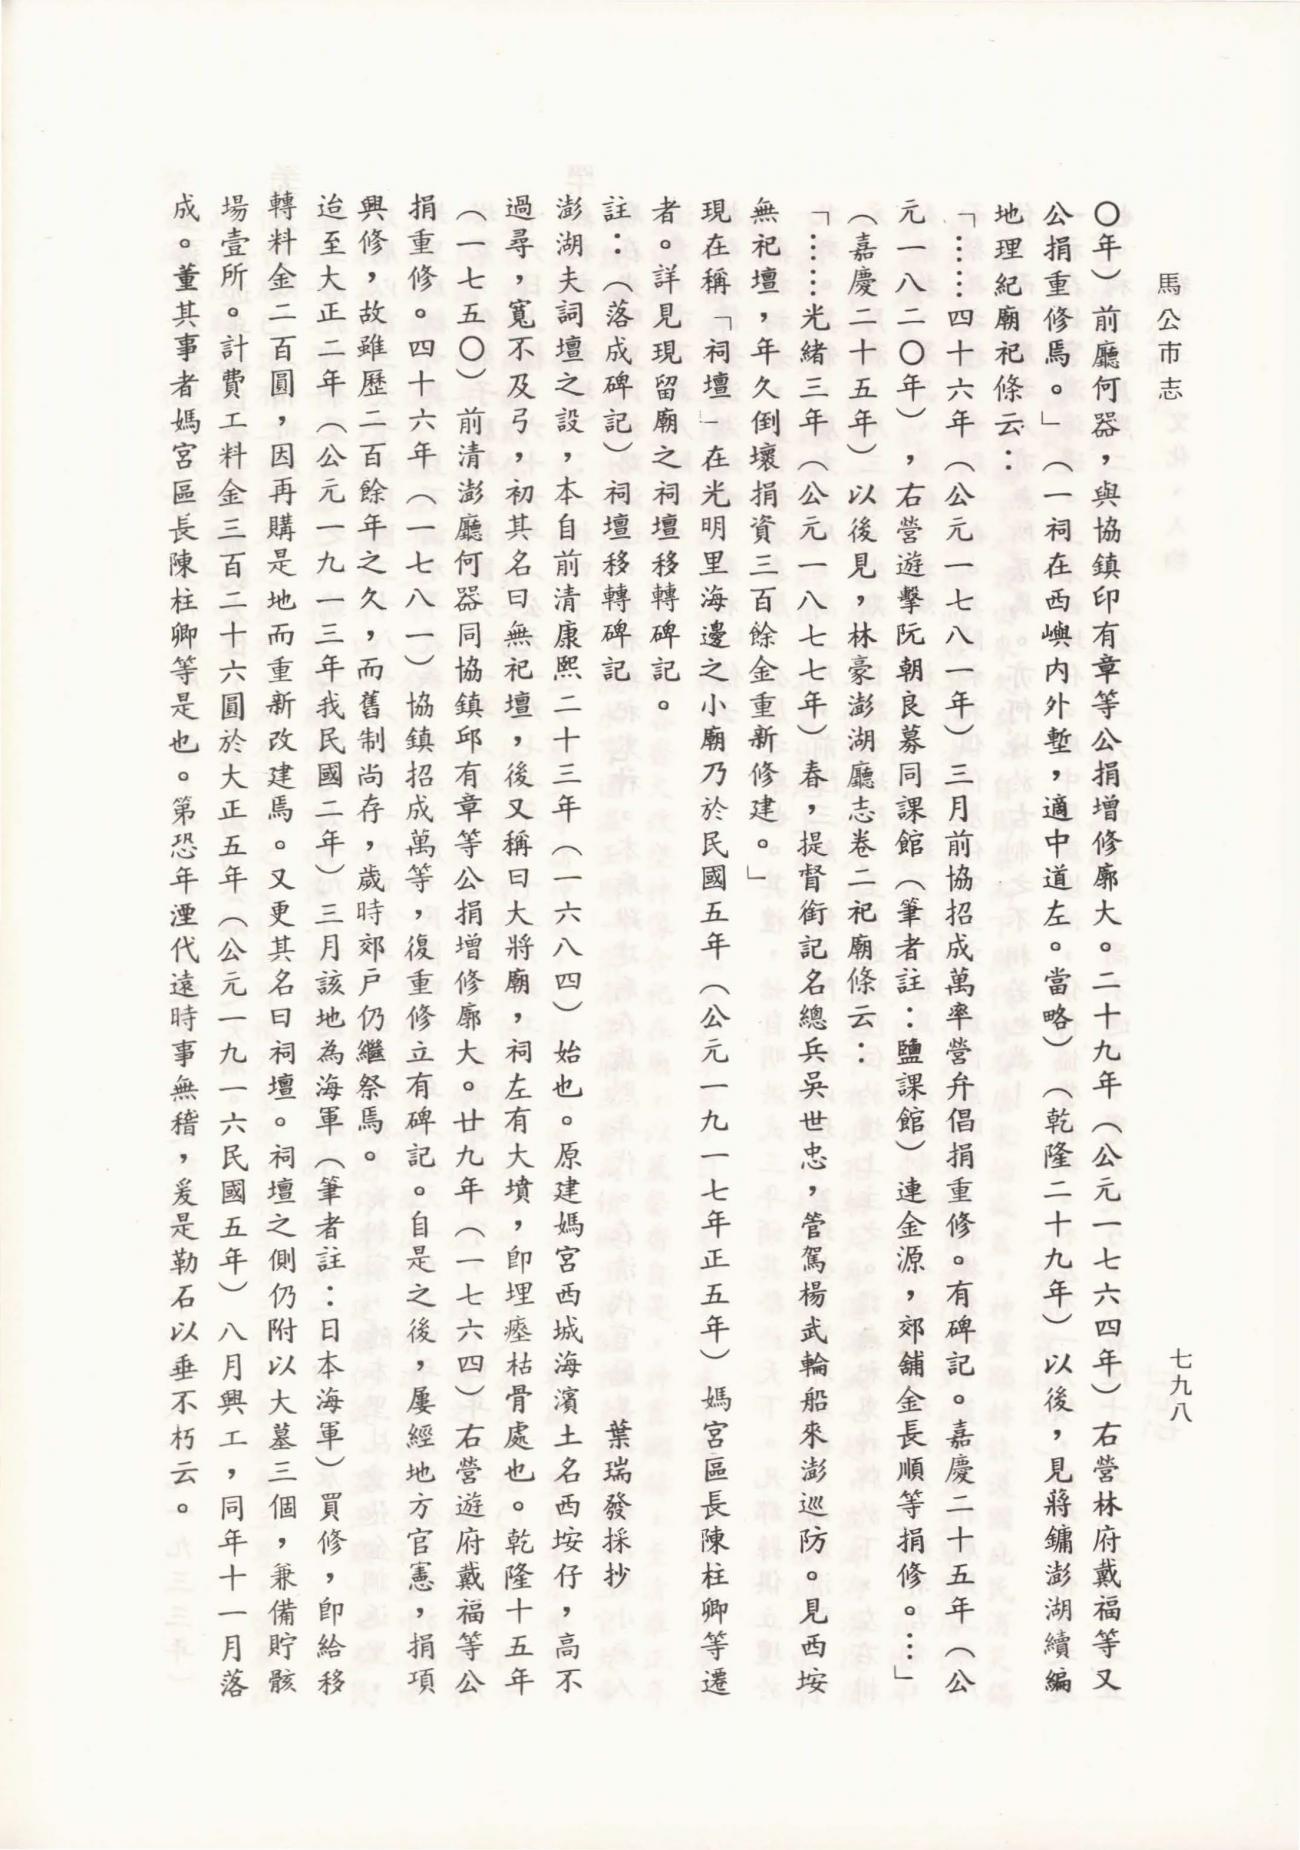 馬公市志
七九八
〇年）前廳何器，與協鎮印有章等公捐增修廓大。二十九年（公元一七六四年）右營林府戴福等又
公捐重修焉。」（一祠在西嶼內外塹，適中道左。當略）（乾隆二十九年）以後，見蔣鏞澎湖續編
地理紀廟祀條云：
「……四十六年（公元一七八一年）三月前協招成萬率營弁倡捐重修。有碑記。嘉慶二十五年（公
元一八二〇年），右營遊擊阮朝良募同課館（筆者註：鹽課館）連金源，郊鋪金長順等捐修。…」
（嘉慶二十五年）以後見，林豪澎湖廳志卷二祀廟條云：
「……光緒三年（公元一八七七年）春，提督銜記名總兵吳世忠，管駕楊武輪船來澎巡防。見西垵
無祀壇，年久倒壞捐資三百餘金重新修建。」
現在稱「祠壇」在光明里海邊之小廟乃於民國五年（公元一九一七年正五年）媽宮區長陳柱卿等遷
者。詳見現留廟之祠壇移轉碑記。
註：（落成碑記）祠壇移轉碑記　葉瑞發採抄
澎湖夫詞壇之設，本自前清康熙二十三年（一六八四）始也。原建媽宮西城海濱土名西垵仔，高不
過尋，寬不及弓，初其名曰無祀壇，後又稱曰大將廟，祠左有大墳，卽埋瘞枯骨處也。乾隆十五年
（一七五〇）前清澎廳何器同協鎮邱有章等公捐增修廓大。廿九年（一七六四）右營遊府戴福等公
捐重修。四十六年（一七八一）協鎮招成萬等，復重修立有碑記。自是之後，屢經地方官憲，捐項
興修，故雖歷二百餘年之久，而舊制尚存，歲時郊戶仍繼祭焉。
迨至大正二年（公元一九一三年我民國二年）三月該地為海軍（筆者註：日本海軍）買修，卽給移
轉料金二百圓，因再購是地而重新改建焉。又更其名曰祠壇。祠壇之側仍附以大墓三個，兼備貯骸
場壹所。計費工料金三百二十六圓於大正五年（公元一九一六民國五年）八月興工，同年十一月落
成。董其事者媽宮區長陳柱卿等是也。第恐年湮代遠時事無稽，爰是勒石以垂不朽云。